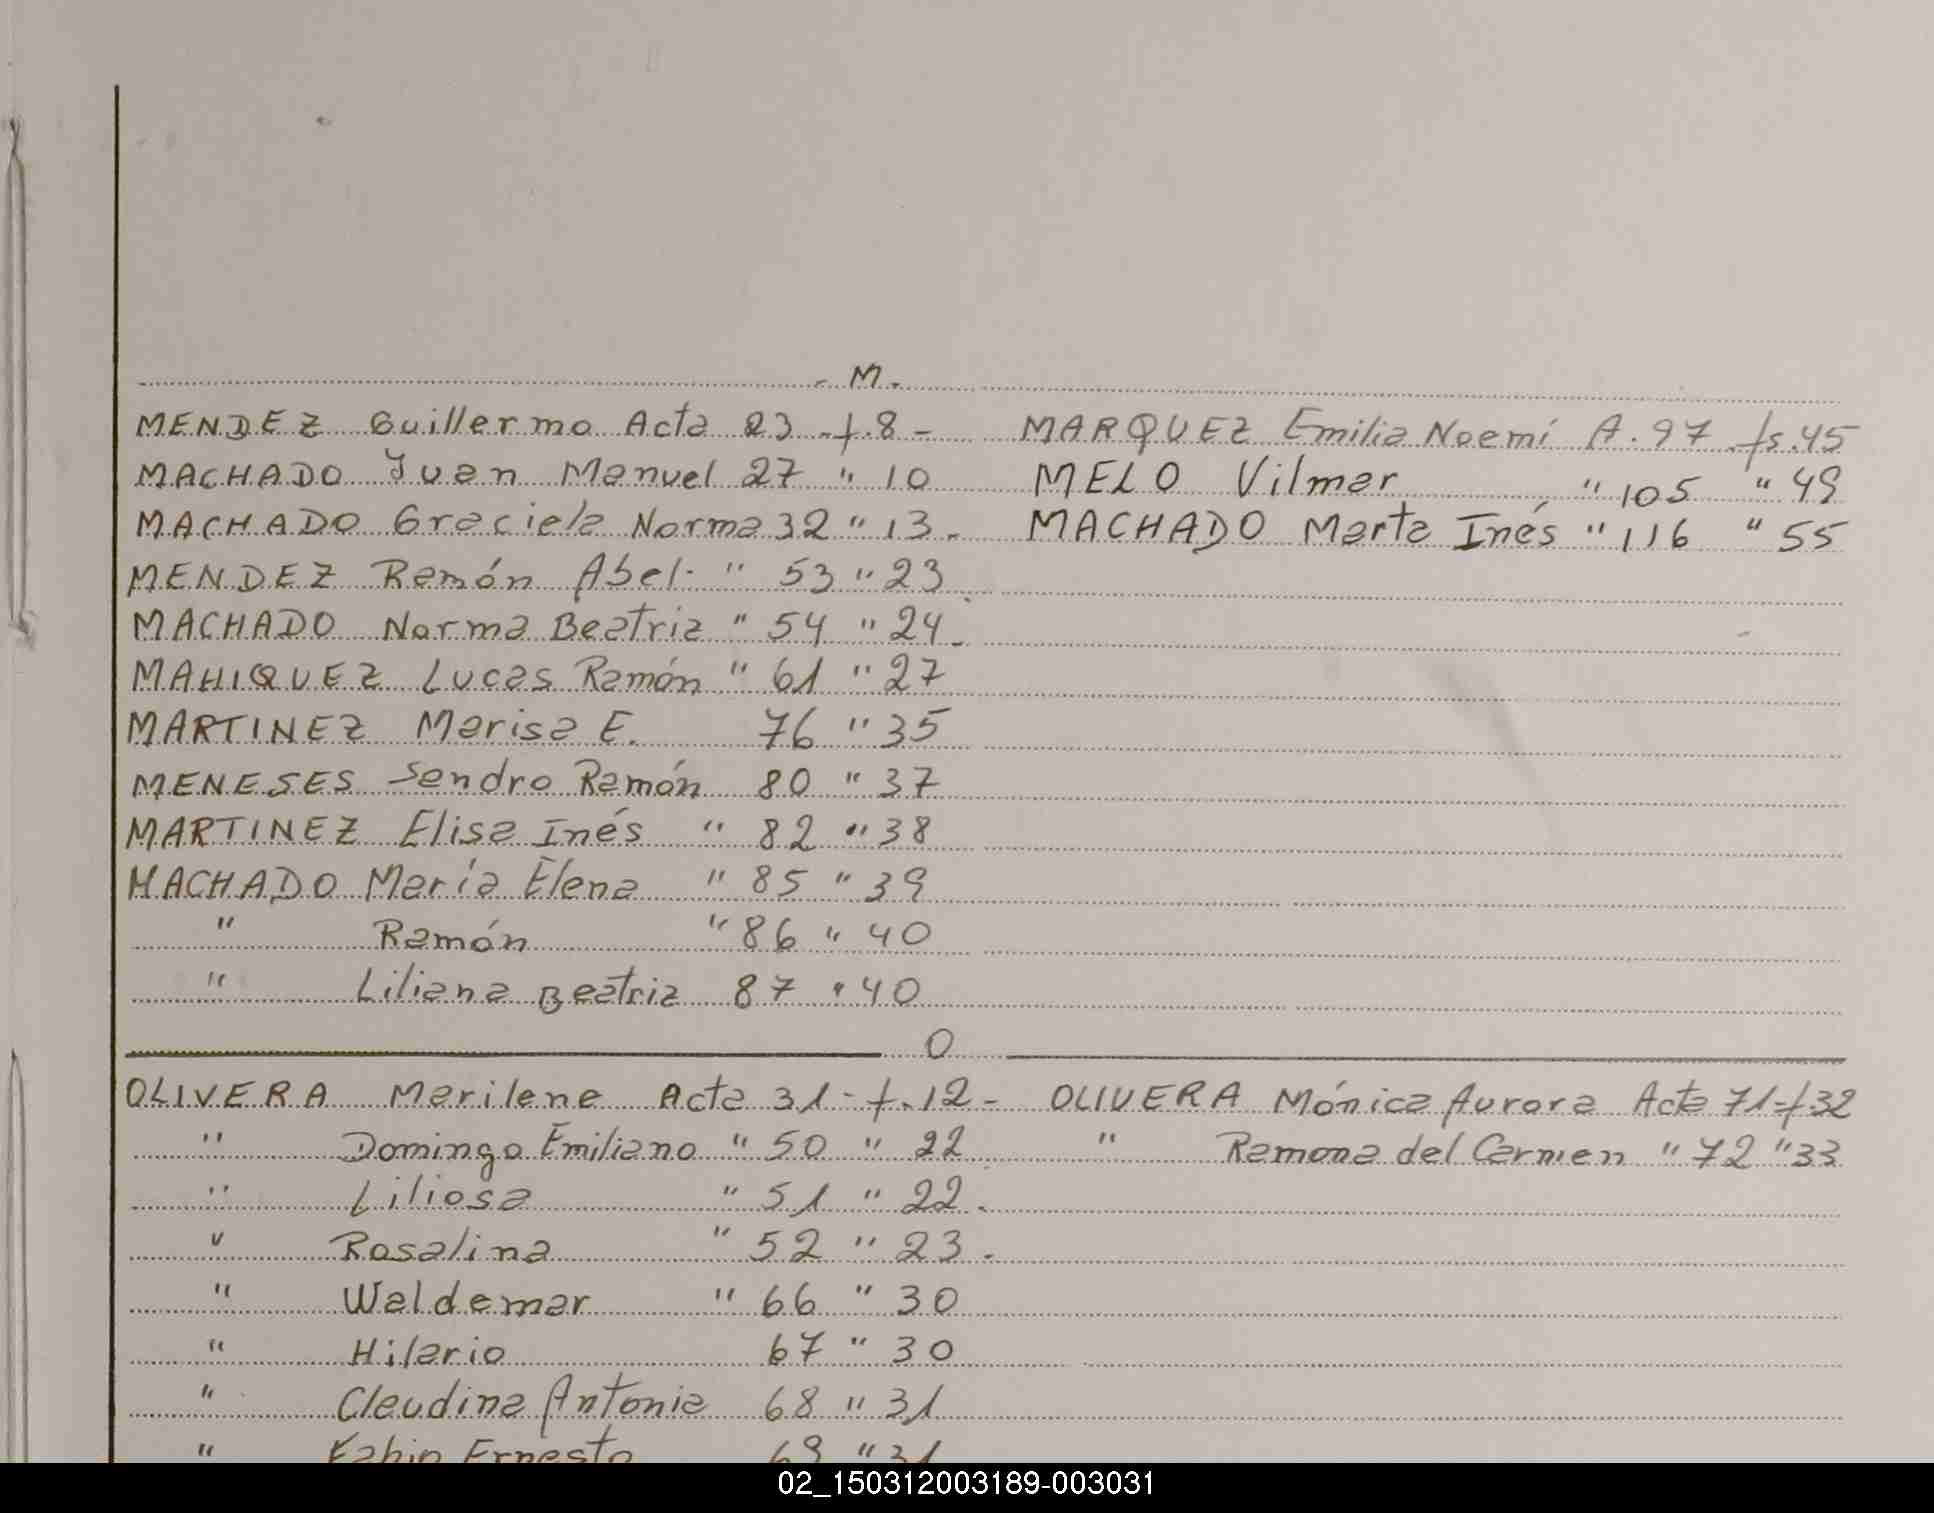 - M.
MENDEZ Guillermo Acta 23 - f. 8 -
MACHADO Juan Manuel 27 " 10
MACHADO Graciela Norma 32 " 13.
MENDEZ Ramón Abel - " 53 " 23.
MACHADO Norma Beatriz " 54 " 24.
MAHIQUEZ Lucas Ramón " 61 " 27
MARTINEZ Marisa E. 76 " 35
MENESES Sandro Ramón 80 " 37
MARTINEZ Elisa Inés " 82 " 38
MACHADO María Elena " 85 " 39
" Ramón " 86 " 40
" Liliana Beatriz 87 " 40
MARQUEZ Emilia Noemí A. 97 fs. 45
MELO Vilmar " 105 " 49
MACHADO Marta Inés " 116 " 55
O
OLIVERA Marilene Acta 31 - f. 12 -
" Domingo Emiliano " 50 " 22
" Liliosa " 51 " 22.
" Rosalina " 52 " 23.
" Waldemar " 66 " 30
" Hilario 67 " 30
" Claudina Antonia 68 " 31
" Fabio Ernesto 69 " 31
OLIVERA Mónica Aurora Acta 71 - f. 32
" Ramona del Carmen " 72 " 33
02_150312003189-003031